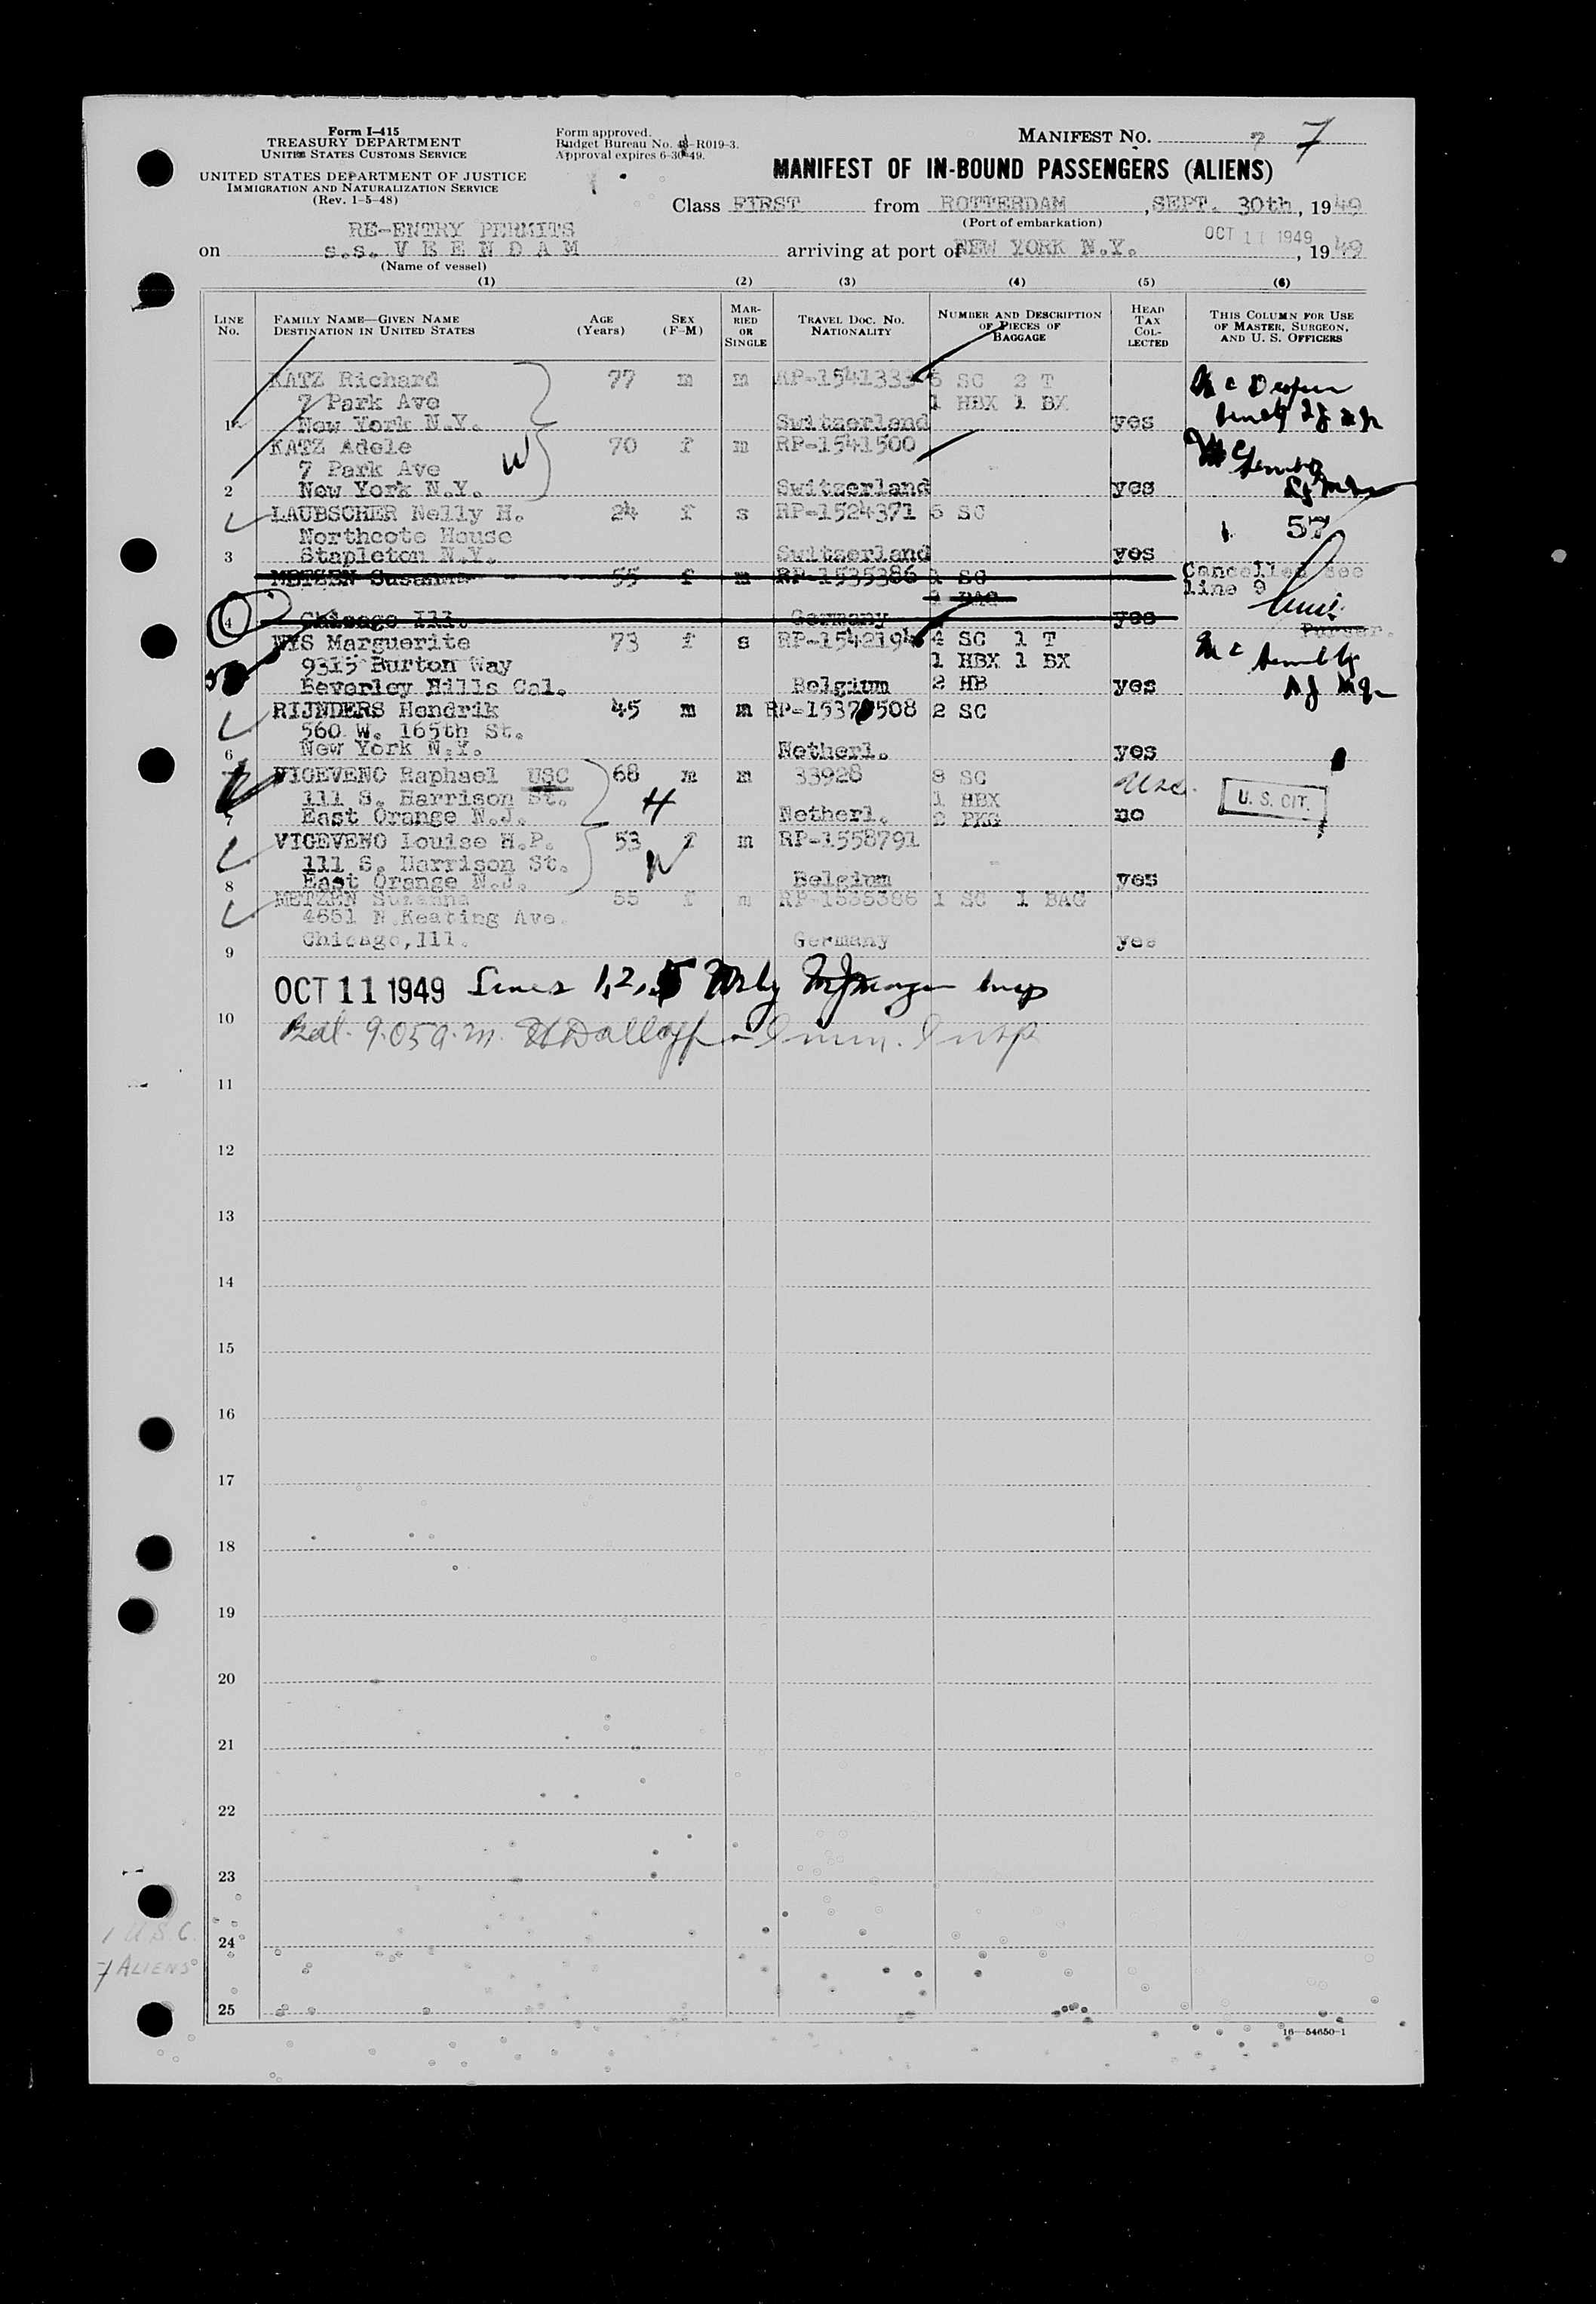 Form I-415
TREASURY DEPARTMENT
UNITED STATES CUSTOMS SERVICE
UNITED STATES DEPARTMENT OF JUSTICE
IMMIGRATION AND NATURALIZATION SERVICE
(Rev. 1-5-48)
Form approved.
Budget Bureau No. -R019-3.
Approval expires 6-30-49.
MANIFEST NO. 7 7
MANIFEST OF IN-BOUND PASSENGERS (ALIENS)
Class FIRST from ROTTERDAM, SEPT. 30th, 1949
(Port of embarkation)
RE-ENTRY PERMITS
on s.s. VEENDAM arriving at port of NEW YORK N.Y. OCT 11 1949, 1949
(Name of vessel)
(1) (2) (3) (4) (5) (6)
LINE No.
FAMILY NAME—GIVEN NAME
DESTINATION IN UNITED STATES
AGE (Years)
SEX (F-M)
MARRIED OR SINGLE
TRAVEL DOC. NO. NATIONALITY
NUMBER AND DESCRIPTION OF PIECES OF BAGGAGE
HEAD TAX COLLECTED
THIS COLUMN FOR USE OF MASTER, SURGEON, AND U. S. OFFICERS
KATZ Richard 77 m m RP-1541333 6 SC 2 T
7 Park Ave 1 HBX 1 BX
1 New York N.Y. Switzerland yes
KATZ Adele 70 f m RP-1541500
7 Park Ave W
2 New York N.Y. Switzerland yes
LAUBSCHER Nelly H. 24 f s RP-1524371 5 SC
Northcote House 57
3 Stapleton N.Y. Switzerland yes
METZEN Susanna 55 f m RP-1535386 1 SC Cancelled see
1 BAG line 9
4 Chicago Ill. Germany yes Purser.
NYS Marguerite 73 f s RP-1542194 4 SC 1 T
9315 Burton Way 1 HBX 1 BX
5 Beverley Hills Cal. Belgium 2 HB yes
RIJNDERS Hendrik 45 m m RP-1537508 2 SC
560 W. 165th St.
6 New York N.Y. Netherl. yes
VIGEVENO Raphael USC 68 m m 33928 8 SC USC.
111 S. Harrison St. H 1 HBX U. S. CIT.
7 East Orange N.J. Netherl. 2 PKG no
VIGEVENO Louise H.P. 53 f m RP-1558791
111 S. Harrison St. W
8 East Orange N.J. Belgium yes
METZEN Suzanna 55 f m RP-1535386 1 SC 1 BAG
4651 N.Keating Ave.
9 Chicago, Ill. Germany yes
OCT 11 1949 Lines 1, 2, 5 only
10 9.05 a.m. Imm. Insp
11
12
13
14
15
16
17
18
19
20
21
22
23
1 U.S.C.
24
7 ALIENS
25
16—54650-1